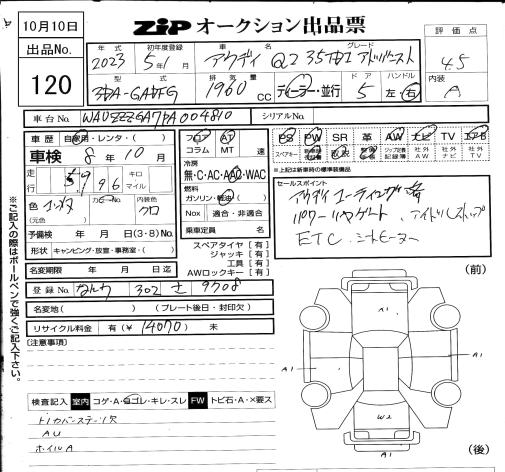 10月10日
ZIP オークション出品票
評価点
4.5
内装
A
出品No.
120
年式
2023
初年度登録
5年1月
車名
アウディ Q2 35TDI アドバンスト
グレード
型式
3DA-GADFG
排気量
1960 cc
ディーラー・並行
ドア
5
ハンドル
左・右
車台No.
WAUZZZGA7PA004810
シリアルNo.
車歴
自家用・レンタ・( )
車検 8年10月
走行
5996
キロ
マイル
色
(元色)
カラーNo.
内装色
クロ
予備検 年 月 日(3・8)No.
形状 キャンピング・放室・事務室・( )
名変期限 年 月 日迄
フロア AT
コラム MT 速
冷房
無・C・AC・AAC・WAC
燃料
ガソリン・軽油( )
Nox 適合・非適合
乗車定員 名
スペアタイヤ [有]
ジャッキ [有]
工具 [有]
AWロックキー [有]
PS PW SR 革 AW ナビ TV エアB
スペアキー 取説 社外AW 社外ナビ 社外TV
※上記は新車時の標準装備品
セールスポイント
アイドルストップ
ETC シートヒーター
登録No. なにわ 302 さ 9708
名変地( ) (プレート後日・封印欠)
リサイクル料金 有(¥14070) 未
[注意事項]
検査記入 室内 コゲ・A・ヨゴレ・キレ・スレ FW トビ石・A・×要ス
AU
ホイルA
※ご記入の際はボールペンで強くご記入下さい。
(前)
A1
A1
A1
W2
(後)